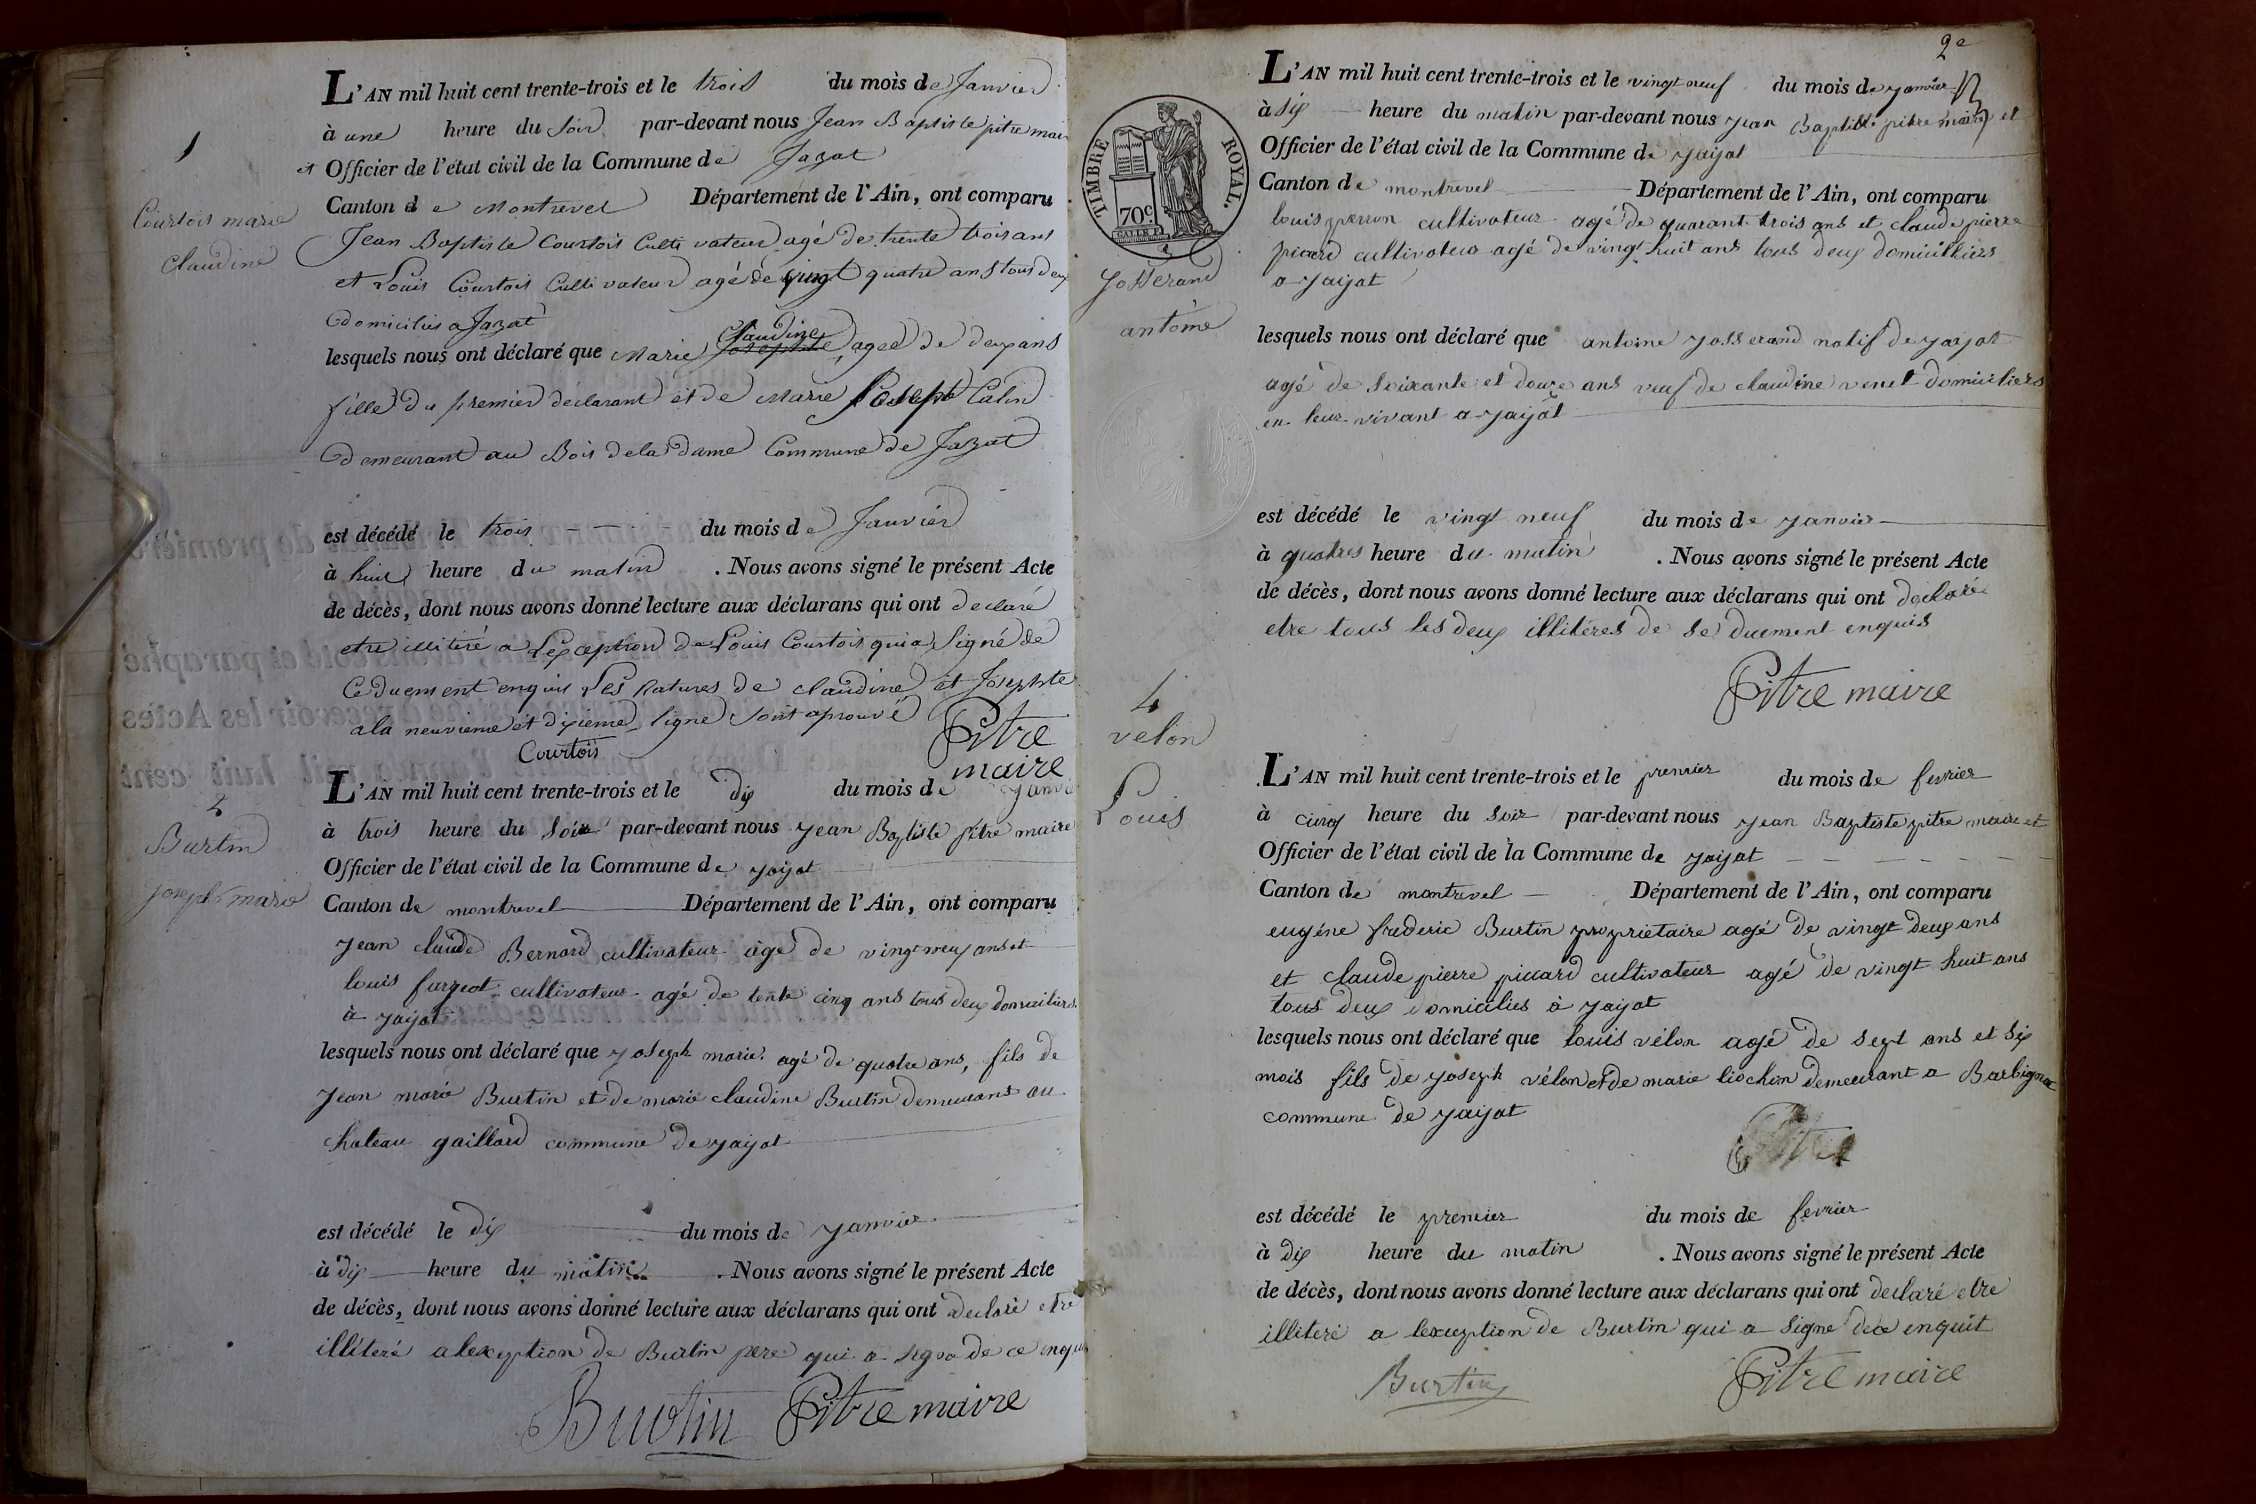 1
Courtois marie
Claudine
L'AN mil huit cent trente-trois et le trois du mois de Janvier
à une heure du Soir par-devant nous Jean Baptiste pitre maire
et Officier de l'état civil de la Commune de Jazat
Canton de Montrevel Département de l'Ain, ont comparu
Jean Baptiste Courtois Cultivateur agé de trente trois ans
et Louis Courtois Cultivateur agé de vingt quatre ans tous deux
domiciliés a Jazat
Claudine
lesquels nous ont déclaré que Marie Josephte agée de deux ans
fille du premier déclarant et de Marie Josephte Catin
demeurant au Bois de la dame Commune de Jazat
est décédé le trois du mois de Janvier
à huit heure du matin . Nous avons signé le présent Acte
de décès, dont nous avons donné lecture aux déclarans qui ont declaré
etre illitéré a L'exception de Louis Courtois qui a Signé de
Ce duement enquis Les Ratures de claudine et Josephte
a la neuvieme et dixieme ligne Sont aprouvé
Courtois
Pitre
maire
Burtin
joseph marie
L'AN mil huit cent trente-trois et le dix du mois de janvi
à trois heure du Soir par-devant nous jean Baptiste pitre maire
Officier de l'état civil de la Commune de jayat
Canton de montrevel Département de l'Ain, ont comparu
jean claude Bernard cultivateur agé de vingt neuf ans et
louis furgeot cultivateur agé de tente cinq ans tous deux domiciliers
à jayat
lesquels nous ont déclaré que joseph marie agé de quatre ans, fils de
jean marie Burtin et de marie claudine Burtin demeurans au
chateau gaillard commune de jayat
est décédé le dix du mois de janvier
à dix heure du matin . Nous avons signé le présent Acte
de décès, dont nous avons donné lecture aux déclarans qui ont declaré etre
illitéré a lexception de Burtin pere qui a signé de ce enquis
Burtin Pitre maire
2e
TIMBRE ROYAL.
70c
josserand
antoine
L'AN mil huit cent trente-trois et le vingt neuf du mois de janvier
à six heure du matin par-devant nous jean Baptiste pitre maire et
Officier de l'état civil de la Commune de jayat
Canton de montrevel Département de l'Ain, ont comparu
louis perron cultivateur agé de quarant trois ans et claude pierre
picard cultivateur agé de vingt huit ans tous deux domicilliers
a jayat
lesquels nous ont déclaré que antoine josserand natif de jayat
agé de soixante et douze ans veuf de claudine venet domiciliers
en leur vivant a jayat
est décédé le vingt neuf du mois de janvier
à quatres heure du matin . Nous avons signé le présent Acte
de décès, dont nous avons donné lecture aux déclarans qui ont declaré
etre tous les deux illitéres de se duement enquis
Pitre maire
4
velon
Louis
L'AN mil huit cent trente-trois et le premier du mois de fevrier
à cinq heure du soir par-devant nous jean Baptiste pitre maire et
Officier de l'état civil de la Commune de jayat
Canton de montrevel Département de l'Ain, ont comparu
eugéne frederic Burtin proprietaire agé de vingt deux ans
et claude pierre piccard cultivateur agé de vingt huit ans
tous deux domiciliés à jayat
lesquels nous ont déclaré que louis vélon agé de sept ans et six
mois fils de joseph vélon et de marie liochon demeurant a Barbignat
commune de jayat
Pitre
est décédé le premier du mois de fevrier
à dix heure du matin . Nous avons signé le présent Acte
de décès, dont nous avons donné lecture aux déclarans qui ont declaré etre
illiteré a lexception de Burtin qui a signé dece enquit
Burtin Pitre maire